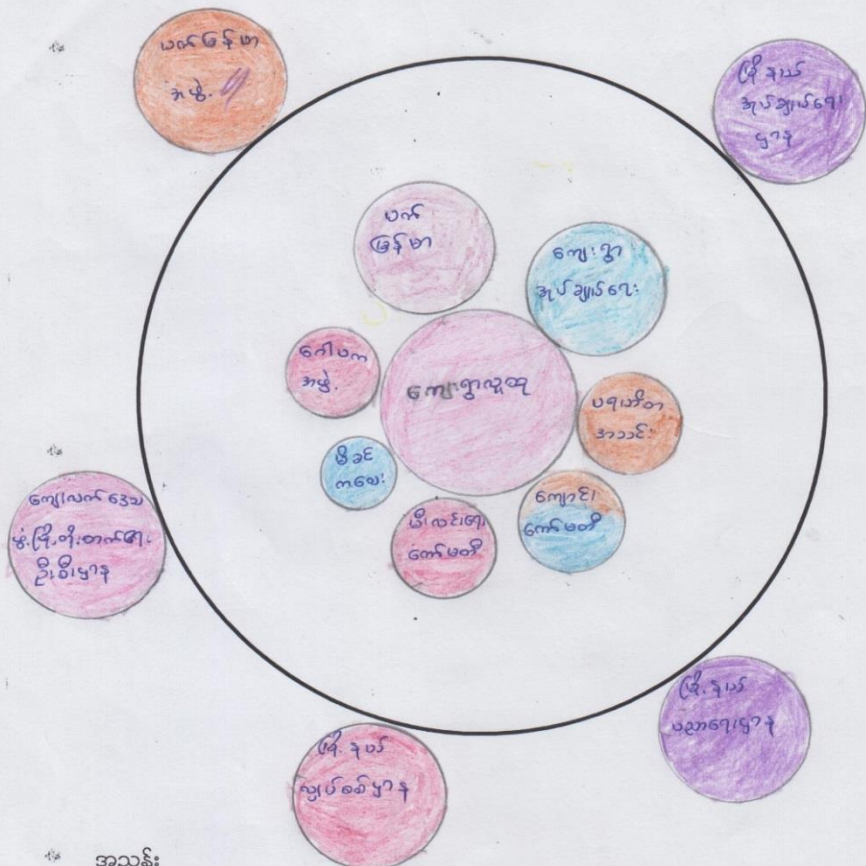 မက်မြန်မာ
အဖွဲ့
မြို့နယ်
အုပ်ချုပ်ရေး
ဌာန
မက်
မြန်မာ
ကျေးရွာ
အုပ်ချုပ်ရေး
ဂေါပက
အဖွဲ့
ကျေးရွာလူထု
ပရဟိတ
အသင်း
မိခင်
ကလေး
မီးလင်းရေး
ကော်မတီ
ကျောင်း
ကော်မတီ
ကျေးလက်ဒေသ
ဖွံ့ဖြိုးတိုးတက်ရေး
ဦးစီးဌာန
မြို့နယ်
ပညာရေးဌာန
မြို့နယ်
လျှပ်စစ်ဌာန
အသန်း